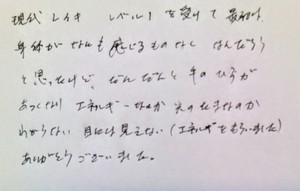 現代レイキ レベル1を受けて 最初は、
身体がなんも感じるものなく なんだろう
と思ったけど、だんだんと手のひらが
あつくなり エネルギーなのか 気のたまなのか
わからない 目には見えない(エネルギーをもらいました)
ありがとうございました。